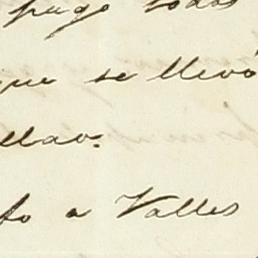 pago todos
que se llevó
llavs.
to a Valles